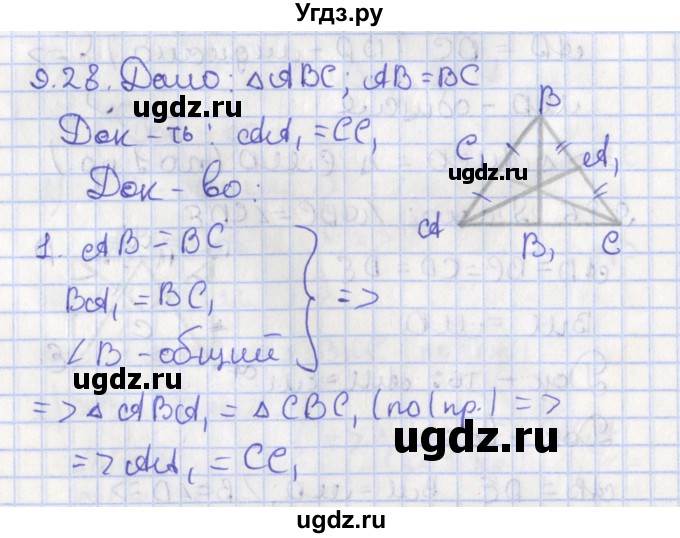 Угдз.ру
9.28. Дано: △ABC; AB=BC
Док-ть: AA₁=CC₁
Док-во:
B
C₁
A₁
A
B₁
C
1. AB=BC
BA₁=BC₁
∠B-общий
=>
=>△ABA₁=△CBC₁(по I пр.)=>
=>AA₁=CC₁
ugdz.ru
ugdz.ru
ugdz.ru
ugdz.ru
ugdz.ru
ugdz.ru
ugdz.ru